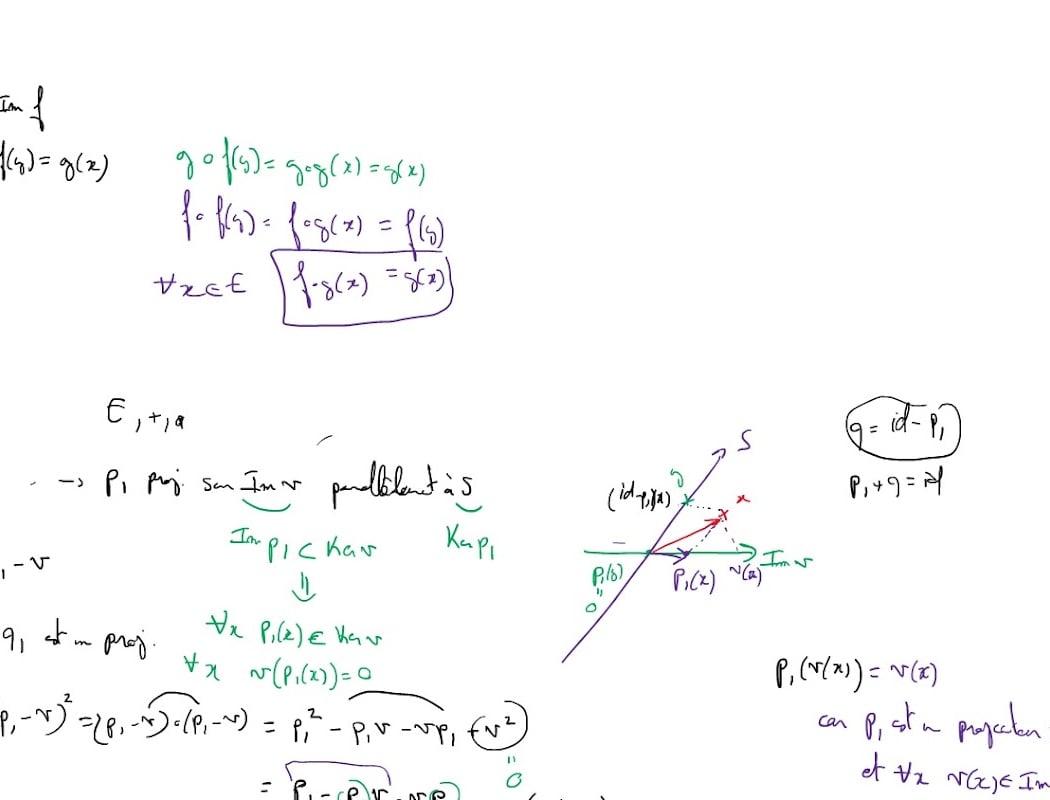 Im f
f(y) = g(x)
g∘f(y) = g∘g(x) = g(x)
f∘f(y) = f∘g(x) = f(y)
∀x∈E f∘g(x) = g(x)
E,+,
→ p₁ proj. sur Im v parallèlement à S
Im p₁ ⊂ Ker v
Ker p₁
⇓
, - v
∀x p₁(x) ∈ Ker v
q₁ est un proj.
∀x v(p₁(x)) = 0
p₁ - v)² = (p₁ - v)∘(p₁ - v) = p₁² - p₁v - vp₁ + v²
= p₁ - p₁v - vp₁
0
S
y
x
(id-p₁)(x)
Im v
p₁(y)
"
0
p₁(x)
v(x)
q = id - p₁
p₁ + q = id
p₁(v(x)) = v(x)
car p₁ est un projecteur
et ∀x v(x) ∈ Im